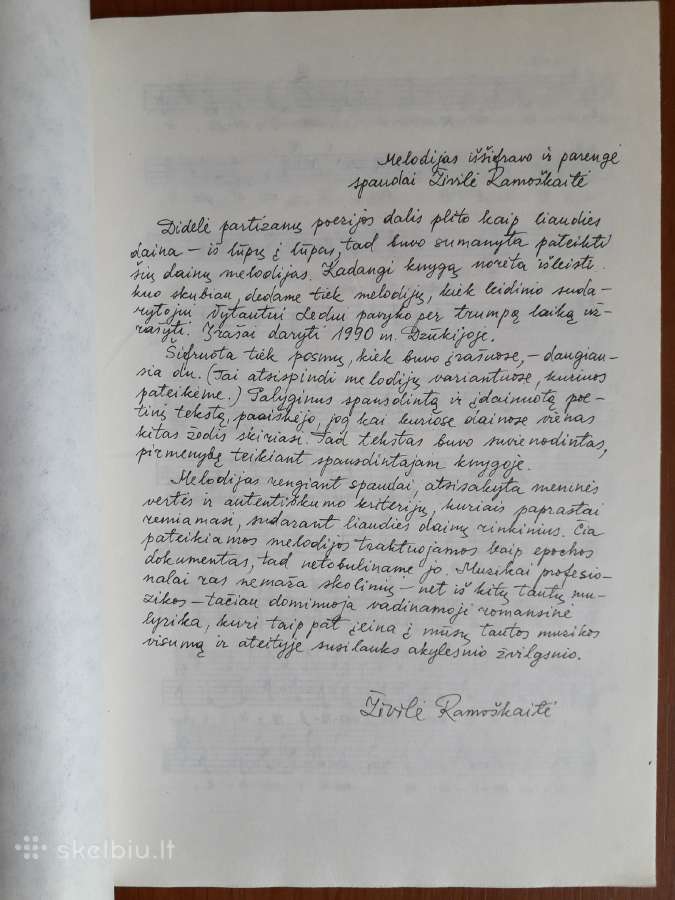 Melodijas iššifravo ir parengė
spaudai Živilė Ramoškaitė
Didelė partizanų poezijos dalis plito kaip liaudies
daina – iš lūpų į lūpas, tad buvo sumanyta pateikti
šių dainų melodijas. Kadangi knygą norėta išleisti
kuo skubiau, dedame tiek melodijų, kiek leidinio suda-
rytojui Vytautui Ledui pavyko per trumpą laiką už-
rašyti. Įrašai daryti 1990 m. Dzūkijoje.
Šifruota tiek posmų, kiek buvo įrašuose, – daugiau-
sia du. (Tai atsispindi melodijų variantuose, kuriuos
pateikėme.) Palyginus spausdintą ir įdainuotą poe-
tinį tekstą, paaiškėjo, jog kai kuriose dainose vienas
kitas žodis skiriasi. Tad tekstas buvo suvienodintas,
pirmenybę teikiant spausdintajam knygoje.
Melodijas rengiant spaudai, atsisakyta meninės
vertės ir autentiškumo kriterijų, kuriais paprastai
remiamasi, sudarant liaudies dainų rinkinius. Čia
pateikiamos melodijos traktuojamos kaip epochos
dokumentas, tad netobuliname jo. Muzikai profesio-
nalai ras nemaža skolinių – net iš kitų tautų mu-
zikos – tačiau dominuoja vadinamoji romansinė
lyrika, kuri taip pat įeina į mūsų tautos muzikos
visumą ir ateityje susilauks akylesnio žvilgsnio.
Živilė Ramoškaitė
skelbiu.lt